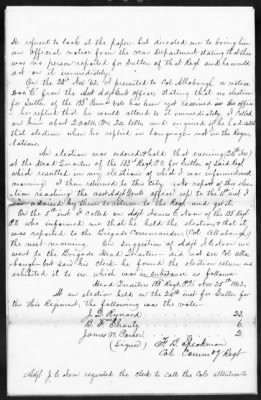 He refused to look at the paper but directed me to bring him
an official notice from the War Department stating that there
was no person reported for Sutler of that Regt and he would
act on it immediately.
On the 25th Nov. 62, I presented to Col Allabaugh a notice
from the Asst Adjt Genl's Office, stating that no election
for Sutler of the 133 Penna Vols has been yet received in this office
he replied that he would attend to it immediately. I called
on him about 2 o'clk P.M. 26 inst. and inquired if he had called
that election when he replied in language not in the Regu-
lations.
An election was ordered & held that evening
at the Head Quarters of the 133 Regt P.V. for Sutler of said Regt
which resulted in my election of which I was informed next
morning I then returned to this City
election reaching the Adjt Genl's Office up to the inst I
was advised by them to return to the Regt and get it.
On the 5th inst I called on Adjt James C. Noon of the 133 Regt
P.V. who informed me that he held the election & that it
was reported to the Brigade Commander (Col Allabaugh)
the next morning. On suggestion of Adjt J. C. Noon we
went to the Brigade Head Quarters did not see Col Alla-
baugh but saw his clerk he found the election return and
exhibited it to us which was in substance as follows
Head Quarter 133 Regt P.V. Nov 25th 1862,
At an election held on the 26th inst for Sutler for
the this Regiment, the following was the vote:
J. D. Rynard 23.
B. F. 6
James W. Parker 2.
(signed) F. B. Speakman
Col. Commdg Regt
Adjt J C Noon requested the clerk to call the Cols attention to